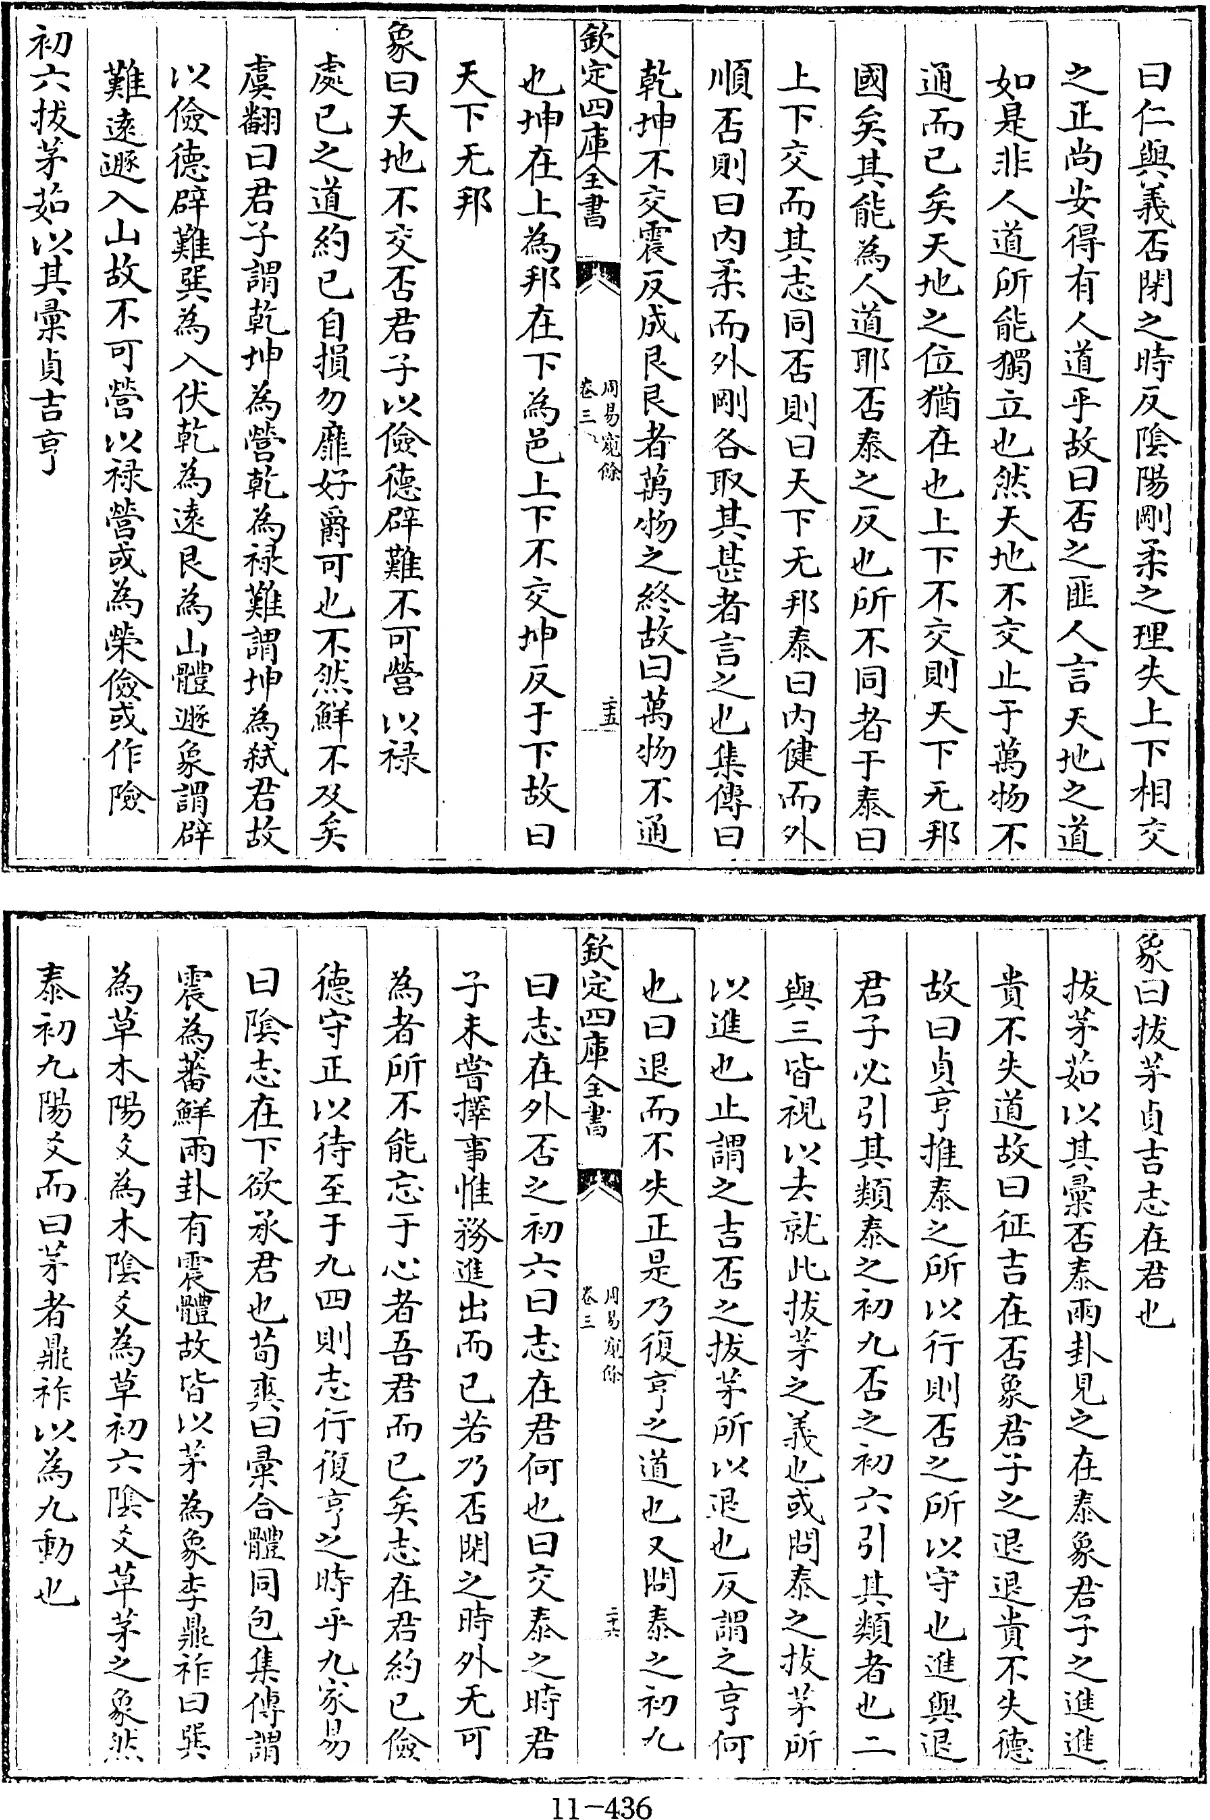 曰仁與義否閉之時反陰陽剛柔之理失上下相交
之正尚安得有人道乎故曰否之匪人言天地之道
如是非人道所能獨立也然天地不交止于萬物不
通而已矣天地之位猶在也上下不交則天下无邦
國矣其能為人道耶否泰之反也所不同者于泰曰
上下交而其志同否則曰天下无邦泰曰內健而外
順否則曰內柔而外剛各取其甚者言之也集傳曰
乾坤不交震反成艮艮者萬物之終故曰萬物不通
欽定四庫全書
周易窺餘
卷三
二十五
也坤在上為邦在下為邑上下不交坤反于下故曰
天下无邦
象曰天地不交否君子以儉德辟難不可營以祿
處己之道約己自損勿靡好爵可也不然鮮不及矣
虞翻曰君子謂乾坤為營乾為祿難謂坤為弒君故
以儉德辟難巽為入伏乾為遠艮為山體遯象謂辟
難遠遯入山故不可營以祿營或為榮儉或作險
初六拔茅茹以其彙貞吉亨
象曰拔茅貞吉志在君也
拔茅茹以其彙否泰兩卦見之在泰象君子之進進
貴不失道故曰征吉在否象君子之退退貴不失德
故曰貞亨推泰之所以行則否之所以守也進與退
君子必引其類泰之初九否之初六引其類者也二
與三皆視以去就此拔茅之義也或問泰之拔茅所
以進也止謂之吉否之拔茅所以退也反謂之亨何
也曰退而不失正是乃復亨之道也又問泰之初九
欽定四庫全書
周易窺餘
卷三
二十六
曰志在外否之初六曰志在君何也曰交泰之時君
子未嘗擇事惟務進出而已若乃否閉之時外无可
為者所不能忘于心者吾君而已矣志在君約己儉
德守正以待至于九四則志行復亨之時乎九家易
曰陰志在下欲承君也荀爽曰彙合體同包集傳謂
震為蕃鮮兩卦有震體故皆以茅為象李鼎祚曰巽
為草木陽爻為木陰爻為草初六陰爻草茅之象然
泰初九陽爻而曰茅者鼎祚以為九動也
11-436